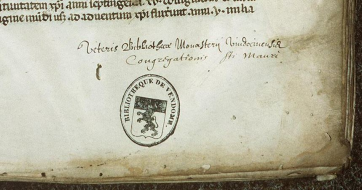 ituitatem xpi anni septingeta
gine mūdi usq ad adventum xpi fluxunt anni. v. milia
Veteris Bibliothecæ Monasterij Vindocinensis
Congregationis sti Mauri
BIBLIOTHEQUE DE VENDOME